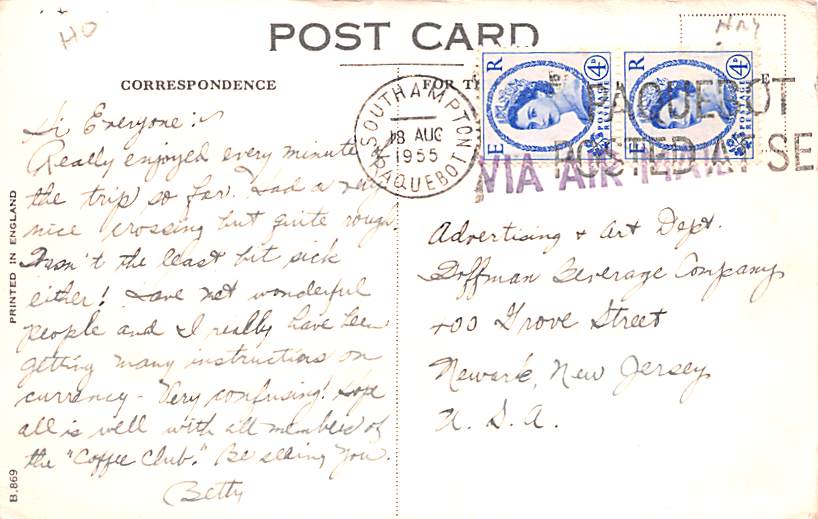 HO
POST CARD
CORRESPONDENCE
FOR TH
E
Hi Everyone :
Really enjoyed every minute of
the trip so far. Had a very
nice crossing but quite rough.
Wasn't the least bit sick
either! Have met wonderful
people and I really have been
getting many instructions on
currency - Very confusing! Hope
all is well with all members of
the "Coffee Club." Be seeing You.
Betty
SOUTHAMPTON
18 AUG
1955
PAQUEBOT
E R
4D
POSTAGE
REVENUE
E R
4D
POSTAGE
REVENUE
PAQUEBOT
POSTED AT SE
VIA AIR MAIL
Advertising + Art Dept.
Hoffman Beverage Company
400 Grove Street
Newark, New Jersey
U. S. A.
PRINTED IN ENGLAND
B.869